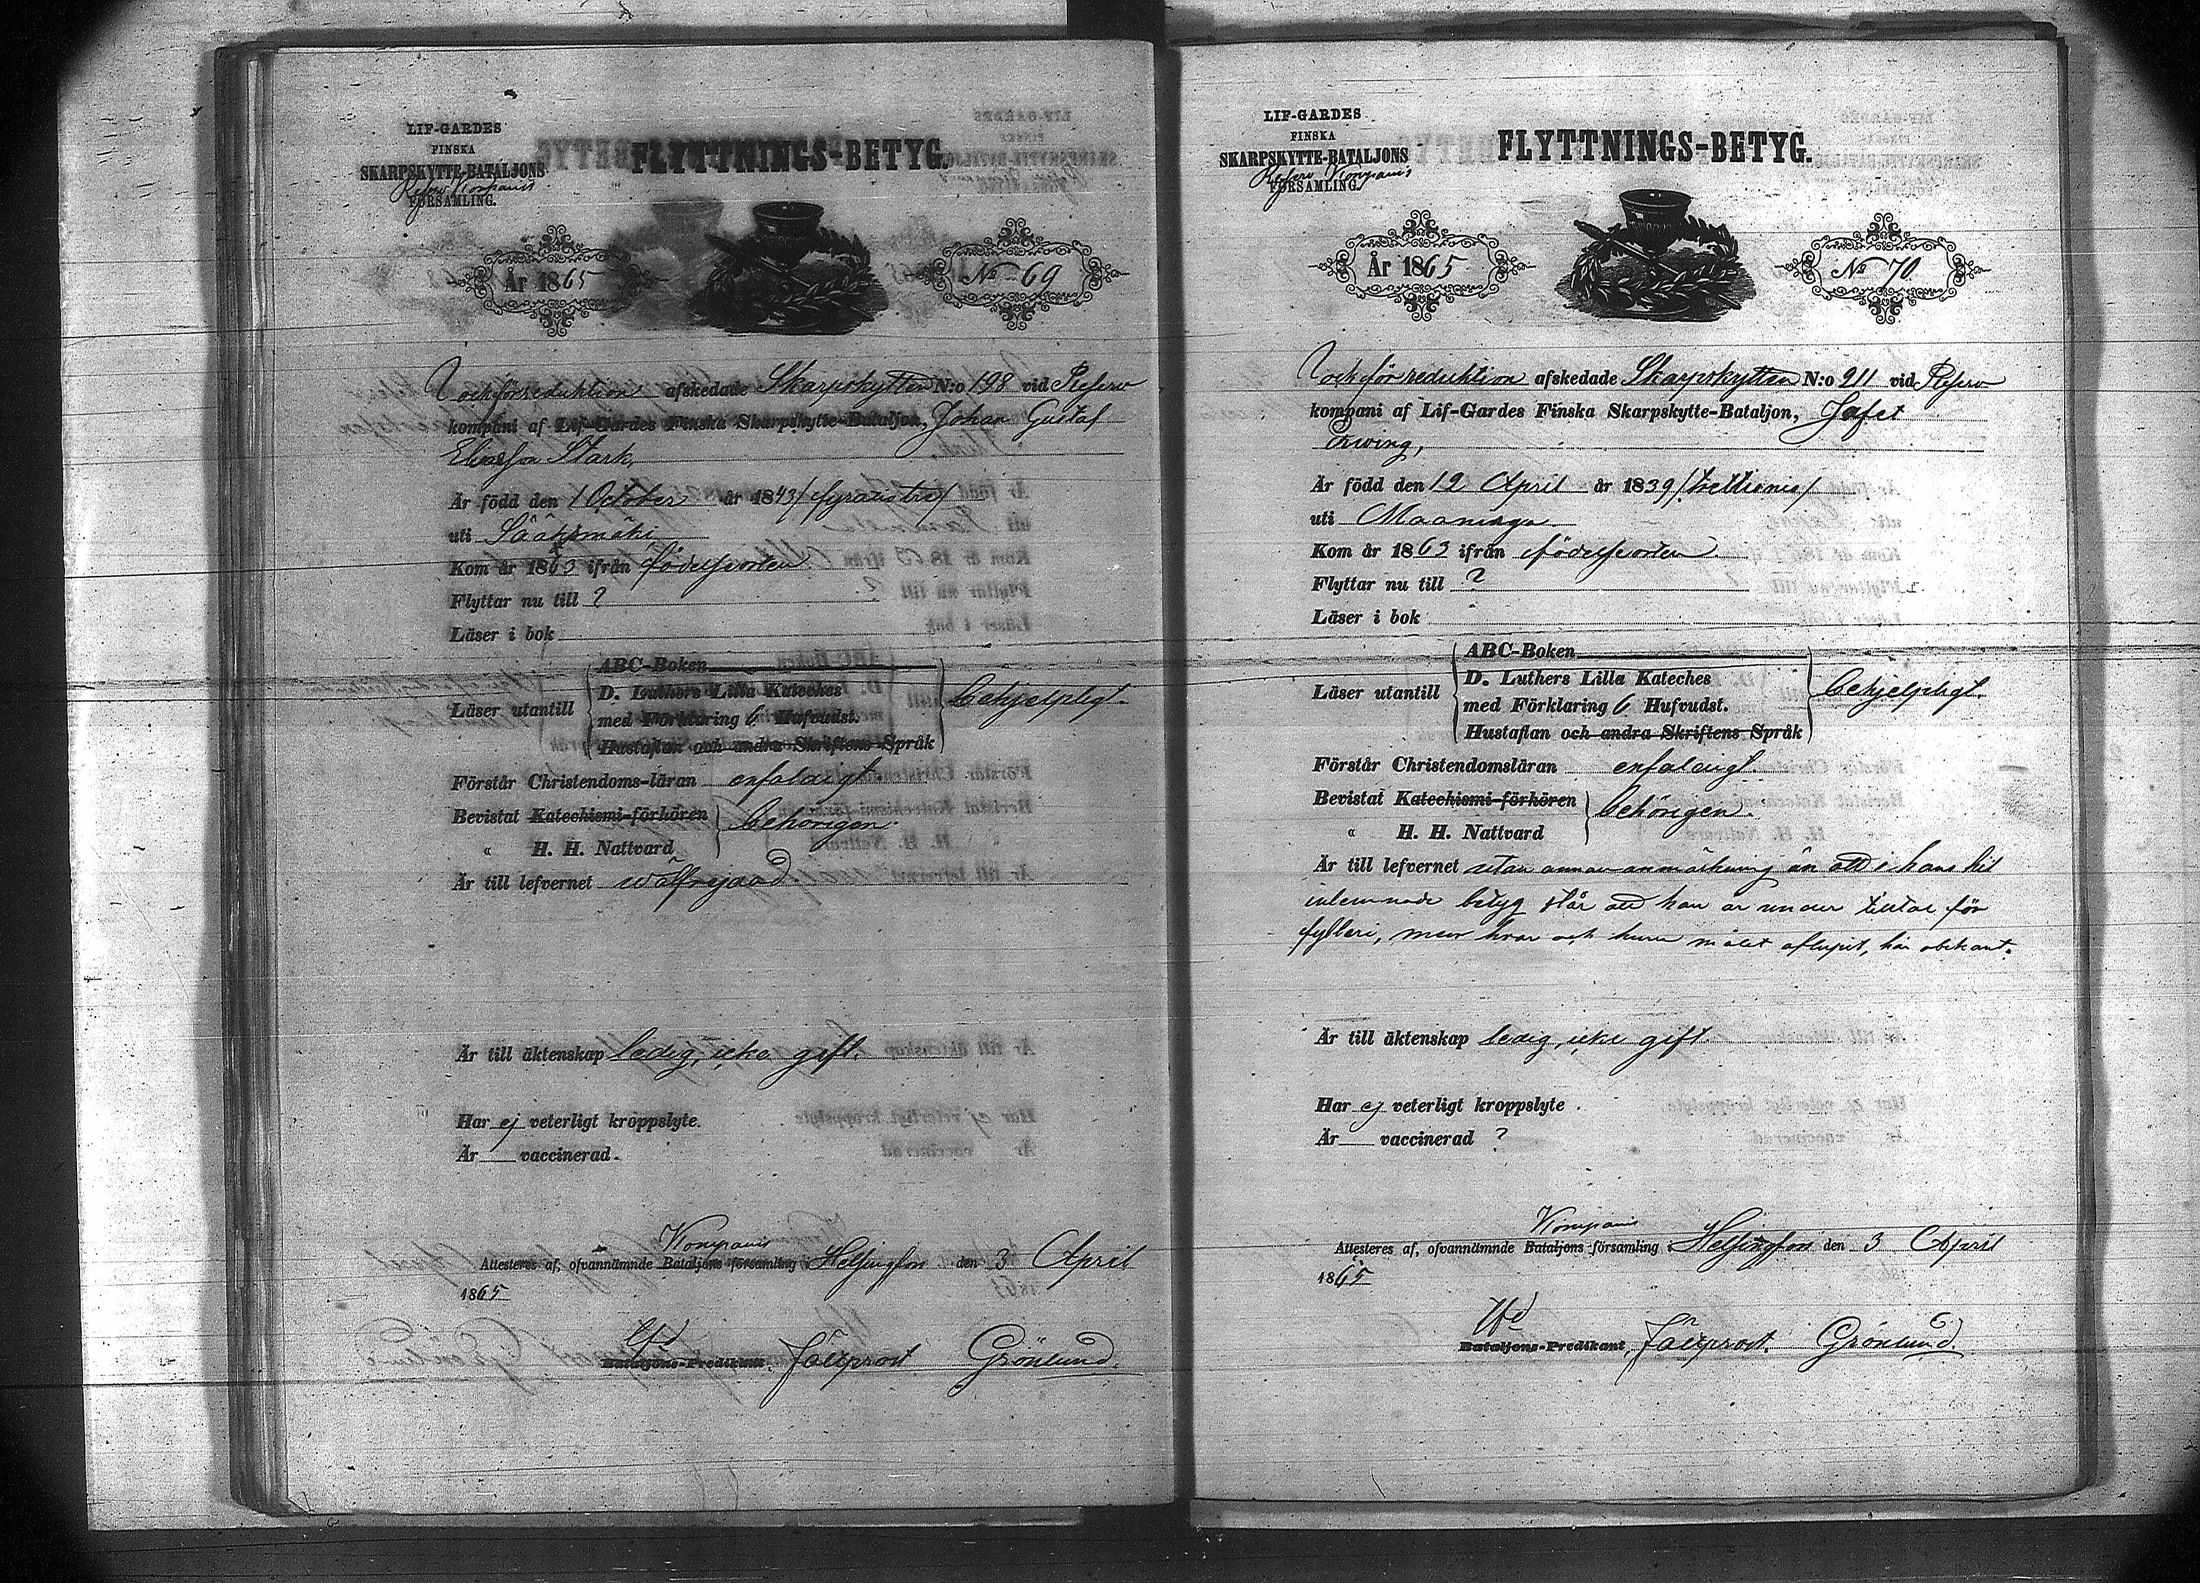 LIF-GARDES
FINSKA
SKARPSKYTTE-BATALJONS
Reserv Kompanis
FÖRSAMLING.
FLYTTNINGS-BETYG.
År 1865
No 69
afskedade Skarpskytten N:o 198 vid Reserv
kompani af Lif-Gardes Finska Skarpskytte-Bataljon, Johan Gustaf
Stark,
Är född den 1 October år 1843 /fyratiotre/
uti Sääksmäki
Kom år 1863 ifrån födelseorten
Flyttar nu till ?
Läser i bok
ABC-Boken
Läser utantill
D. Luthers Lilla Kateches
med Förklaring 6 Hufvudst.
Hustaflan och andra Skriftens Språk
behjelpligt.
Förstår Christendoms-läran enfaldigt.
Bevistat Katechismi-förhören
« H. H. Nattvard
behörigen.
Är till lefvernet wälfrejdad.
Är till äktenskap ledig, icke gift.
Har ej veterligt kroppslyte.
Är vaccinerad.
Kompanis
Attesteres af, ofvannämnde Bataljons församling i Helsingfors den 3 April
1865
Bataljons-Predikant, Fältprost Grönlund.
LIF-GARDES
FINSKA
SKARPSKYTTE-BATALJONS
Reserv Kompanis
FÖRSAMLING.
FLYTTNINGS-BETYG.
År 1865
No 70
och för reduktion afskedade Skarpskytten N:o 211 vid Reserv
kompani af Lif-Gardes Finska Skarpskytte-Bataljon, Jafet
Är född den 12 April år 1839 /trettionio/
uti Maaninga
Kom år 1863 ifrån födelseorten
Flyttar nu till ?
Läser i bok
ABC-Boken
Läser utantill
D. Luthers Lilla Kateches
med Förklaring 6 Hufvudst.
Hustaflan och andra Skriftens Språk
behjelpligt.
Förstår Christendomsläran enfaldigt.
Bevistat Katechismi-förhören
« H. H. Nattvard
behörigen.
Är till lefvernet utan annan anmärkning än att i hans hit
inlemnade betyg står att han är under tilltal för
fylleri, men hvar och huru målet aflupit, här obekant.
Är till äktenskap ledig, icke gift.
Har ej veterligt kroppslyte.
Är vaccinerad ?
Kompanis
Attesteres af, ofvannämnde Bataljons församling i Helsingfors den 3 April
1865
Bataljons-Predikant, Fältprost. Grönlund.